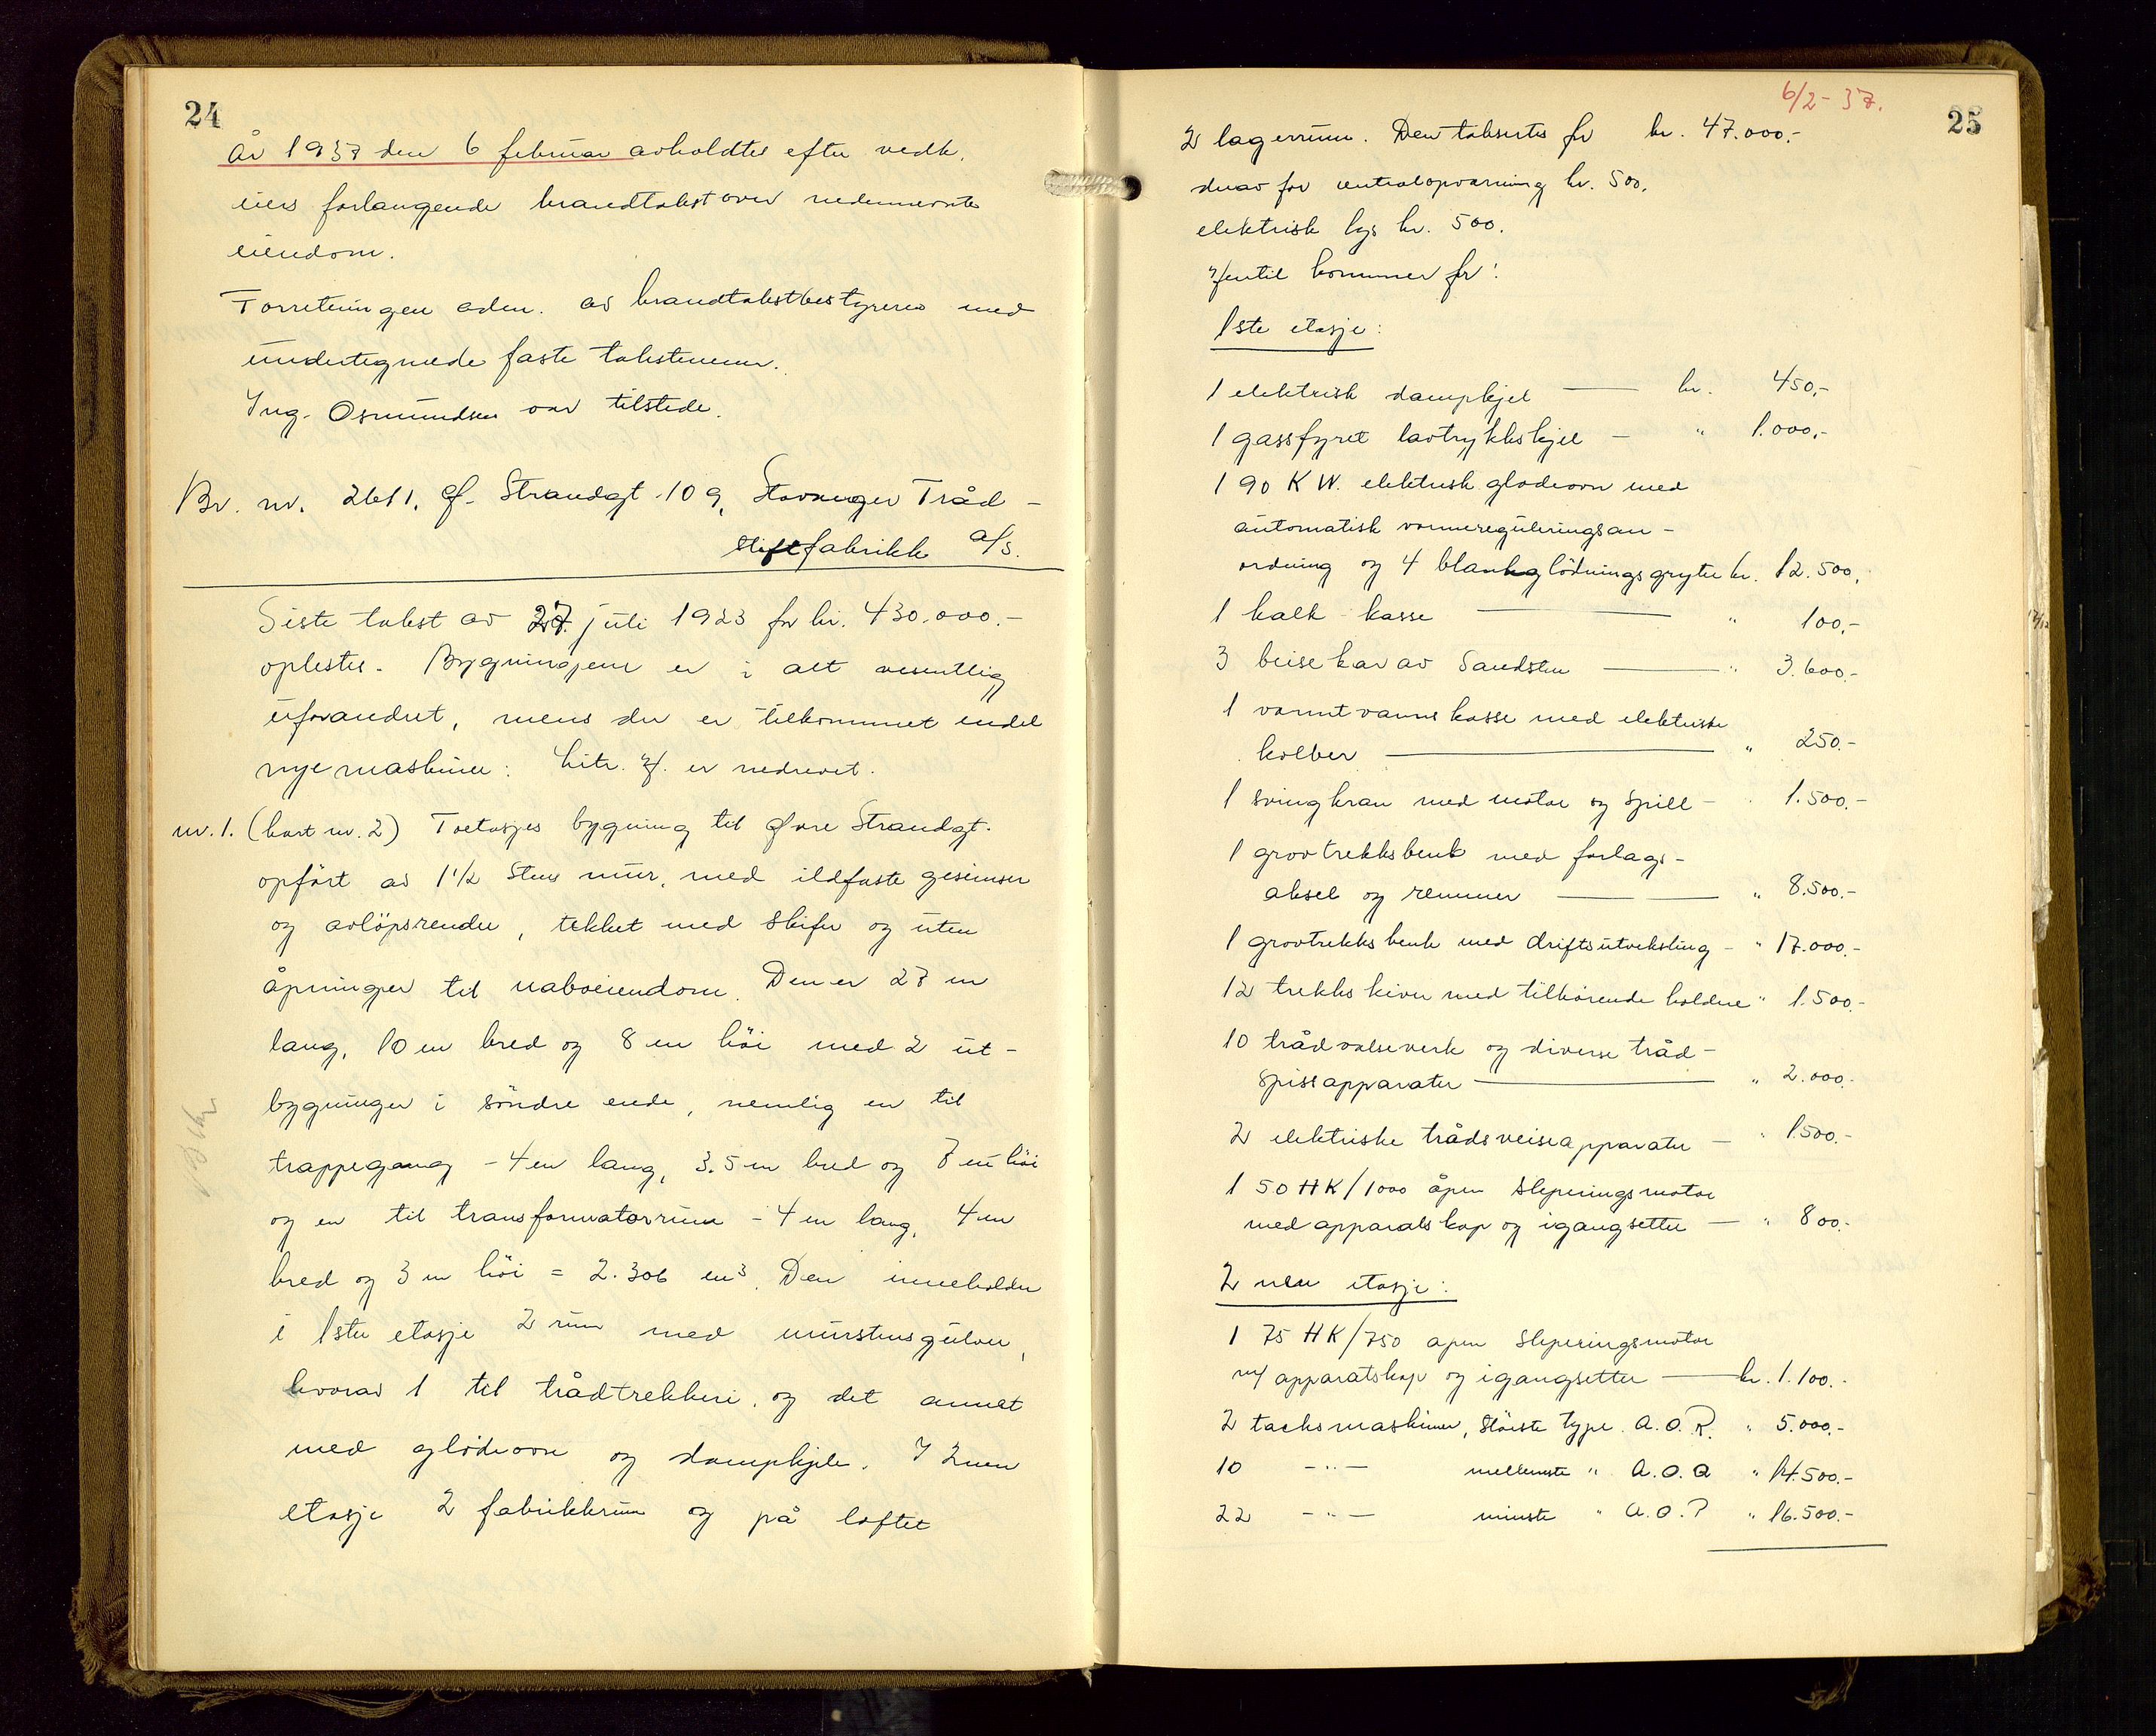 24
År 1937 den 6 februar avholdtes efter vedk.
eiers forlangende brandtakst over nedennevnte
eiendom.
Forretningen adm. av brandtakstbestyreren med
undertegnede faste takstmenn.
Ing. Osmundsen var tilstede.
Br. nr. 2611. Øf. Strandgt. 109, Stavanger Tråd-
stiftfabrikk A/S.
Siste takst av 27. juli 1923 for kr. 430.000.-
oplestes. Bygningene er i alt vesentlig
uforandret, mens der er tilkommet endel
nye maskiner. Litr. er nedrevet.
nr. 1. (kart nr. 2) Toetasjes bygning til Øvre Strandgt.
opført av 1 1/2 stens mur, med ildfaste gesimser
og avløpsrender, tekket med skifer og uten
åpninger til naboeiendom. Den er 27 m
lang, 10 m bred og 8 m høi med 2 ut-
bygninger i søndre ende, nemlig en til
trappegang - 4 m lang, 3.5 m bred og 7 m høi
og en til transformatorrum - 4 m lang, 4 m
bred og 3 m høi = 2.306 m³. Den inneholder
i 1ste etasje 2 rum med murstensgulver,
hvorav 1 til trådtrekkeri, og det annet
med glødeovn og dampkjele. I 2nen
etasje 2 fabrikkrum og på loftet
6/2-37.
25
2 lagerrum. Den takseres for kr. 47.000.-
derav for centralopvarming kr. 500.
elektrisk lys kr. 500.
Hertil kommer for:
1ste etasje:
1 elektrisk dampkjel — kr. 450,-
1 gassfyret lavtrykkskjel — " 1.000,-
1 90 KW. elektrisk glødeovn med
automatisk varmereguleringsan-
ordning og 4 blankglødningsgryter kr. 12.500,
1 kalk-kasse — " 100,-
3 beisekar av Sandsten — " 3.600.-
1 varmtvannskasse med elektriske
kolber — " 250.-
1 svingkran med motor og spill - " 1.500.-
1 grovtrekksbenk med forlags-
aksel og remmer — " 8.500.-
1 grovtrekksbenk med driftsutveksling - " 17.000.-
12 trekkskiver med tilhørende holdere " 1.500.-
10 trådvalseverk og diverse tråd-
spissapparater — " 2.000.-
2 elektriske trådsveiseapparater — " 1.500.-
1 50 HK/1000 åpen sleperingsmotor
med apparatskap og igangsetter — " 800.-
2nen etasje:
1 75 HK/750 åpen Sleperingsmotor
m/ apparatskap og igangsetter — kr. 1.100.-
2 tacksmaskiner, største type A.O.R. " 5.000.-
10 -"- mellemste " A.O.Q " 14.500.-
22 -"- minste " A.O.P " 16.500.-